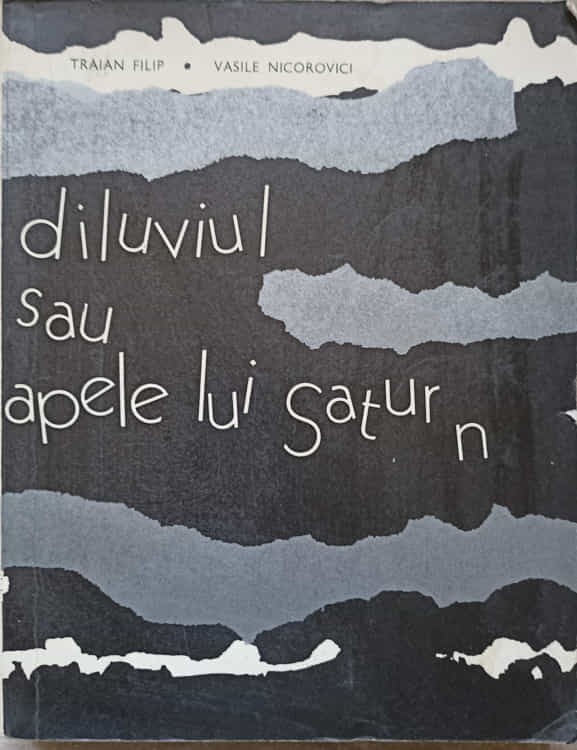 TRAIAN FILIP • VASILE NICOROVICI
diluviul
sau
apele lui Saturn